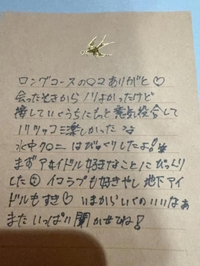 ロングコースの〇〇ありがと♡
会ったときから ノリよかったけど
接していくうちにもっと意気投合して
ノリツッコミ楽しかったっす
水中クロニーはびっくりしたよ!笑
まずアイドル好きなことにびっくり
した イコラブも好きやし 地下アイ
ドルもすき♡ いまからいくのいいなぁ
またいっぱい聞かせてね!